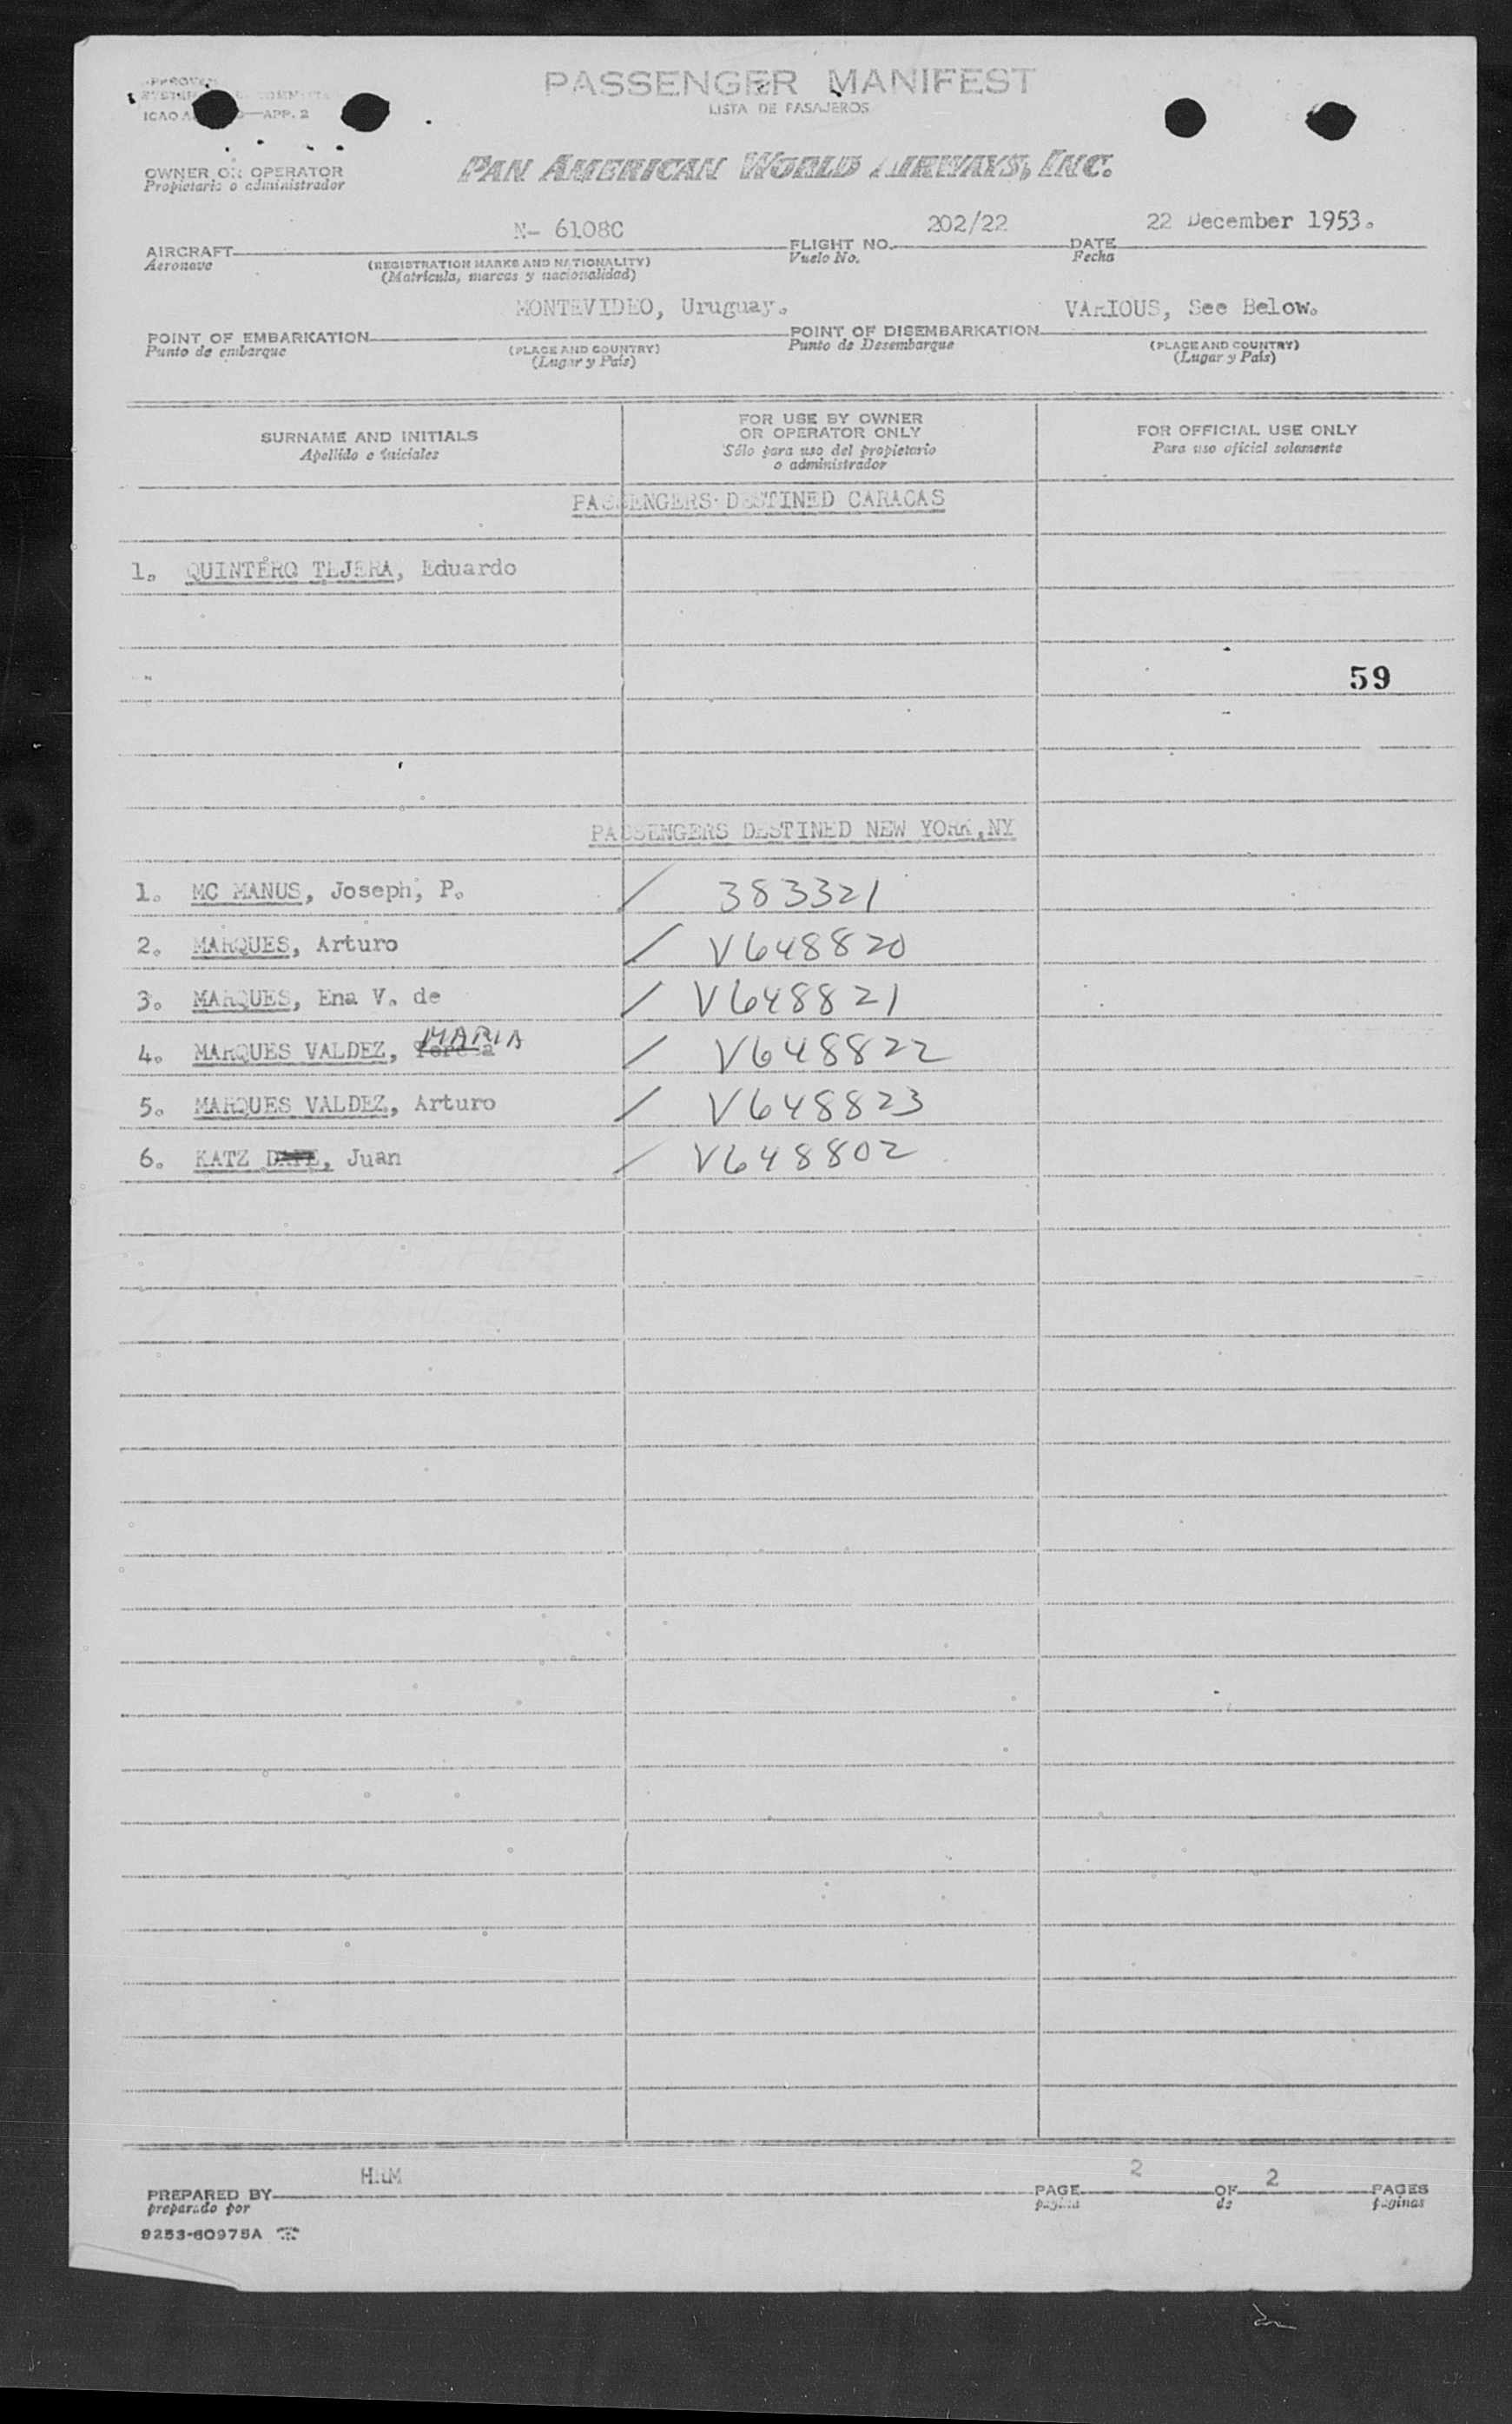 PASSENGER MANIFEST
LISTA DE PASAJEROS
ICAO APP. 2
OWNER OR OPERATOR
Propietario o administrador
PAN AMERICAN WORLD AIRWAYS, INC.
N- 6108C 202/22 22 December 1953.
AIRCRAFT FLIGHT NO. DATE
Aeronave (REGISTRATION MARKS AND NATIONALITY) Vuelo No. Fecha
(Matrícula, marcas y nacionalidad)
MONTEVIDEO, Uruguay. VARIOUS, See Below.
POINT OF EMBARKATION POINT OF DISEMBARKATION
Punto de embarque (PLACE AND COUNTRY) Punto de Desembarque (PLACE AND COUNTRY)
(Lugar y País) (Lugar y País)
SURNAME AND INITIALS
Apellido e iniciales
FOR USE BY OWNER
OR OPERATOR ONLY
Sólo para uso del propietario
o administrador
FOR OFFICIAL USE ONLY
Para uso oficial solamente
PASSENGERS DESTINED CARACAS
1. QUINTERO TEJERA, Eduardo
59
PASSENGERS DESTINED NEW YORK,NY
1. MC MANUS, Joseph, P. / 383321
2. MARQUES, Arturo / V648820
3. MARQUES, Ena V. de / V648821
MARIA
4. MARQUES VALDEZ, Teresa / V648822
5. MARQUES VALDEZ, Arturo / V648823
6. KATZ, Juan / V648802
HRM 2 2
PREPARED BY PAGE OF PAGES
preparado por página de páginas
9253-60975A